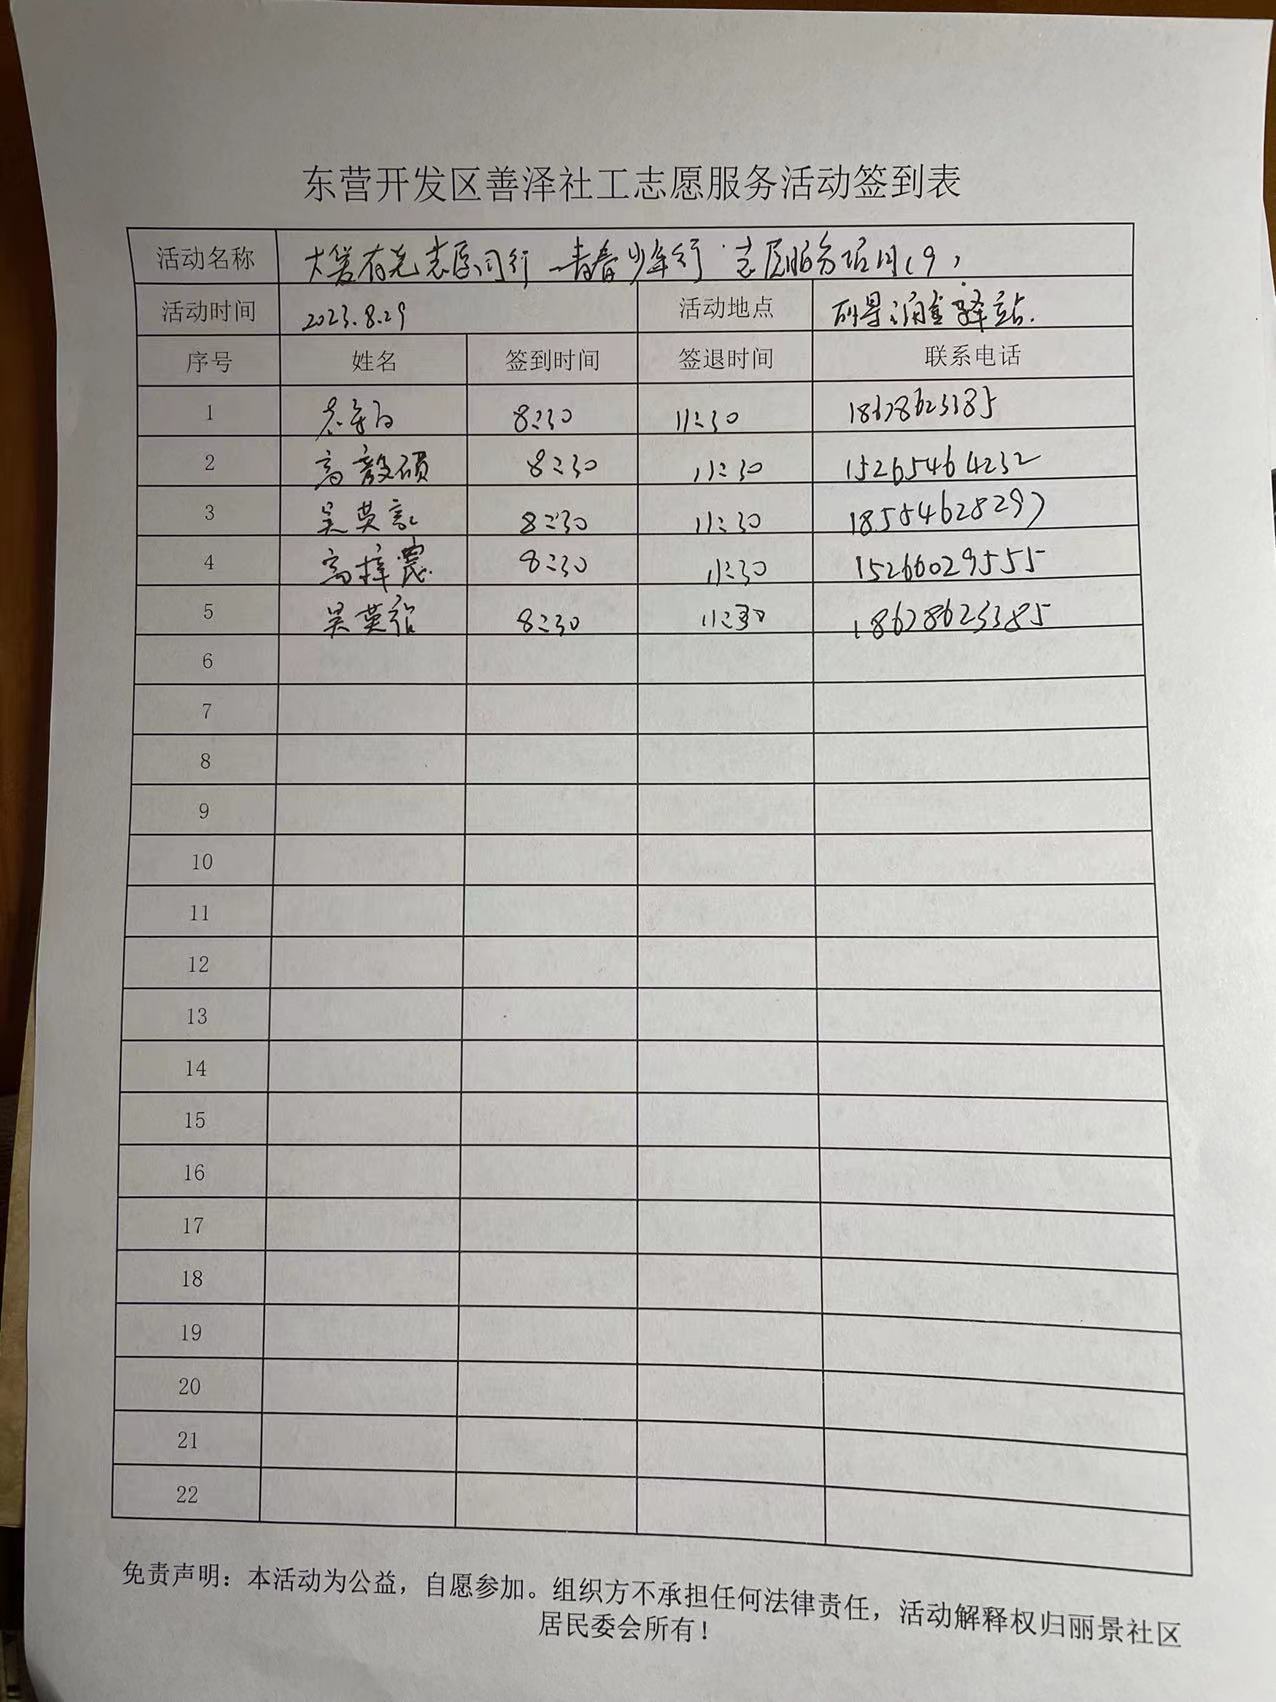 东营开发区善泽社工志愿服务活动签到表
活动名称 大爱有光志愿同行 青春少年行 志愿服务项目(9)
活动时间 2023.8.29 活动地点 丽景润宜驿站.
序号 姓名 签到时间 签退时间 联系电话
1 8:30 11:30 18678623385
2 高毅硕 8:30 11:30 15265464232
3 吴英 8:30 11:30 18554628297
4 高梓宸 8:30 11:30 15266029555
5 吴英 8:30 11:30 18678623385
6
7
8
9
10
11
12
13
14
15
16
17
18
19
20
21
22
免责声明：本活动为公益，自愿参加。组织方不承担任何法律责任，活动解释权归丽景社区
居民委会所有！